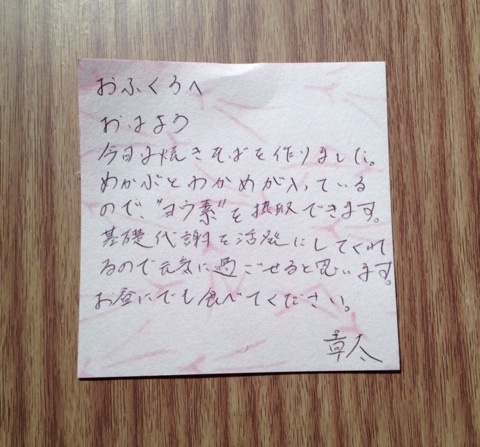 おふくろへ
おはよう
今日は焼きそばを作りました。
めかぶとわかめが入っている
ので、"ヨウ素"を摂取できます。
基礎代謝を活発にしてくれ
るので元気に過ごせると思います。
お昼にでも食べてください。
章太